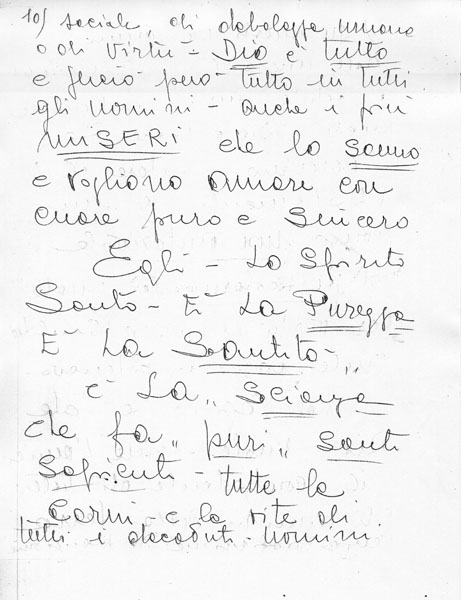 10) sociale, di debolezza umana
o di virtù - Dio è tutto
e perciò però tutto in tutti
gli uomini - anche i più
MISERI che lo sanno
e vogliono amare con
cuore puro e sincero
Egli - Lo Spirito
Santo - È La Purezza
È La Santità - „
è La „ Scienza
che fa „ puri „ santi
Sapienti - tutte le
Carni - e le vite di
tutti i decaduti - uomini.